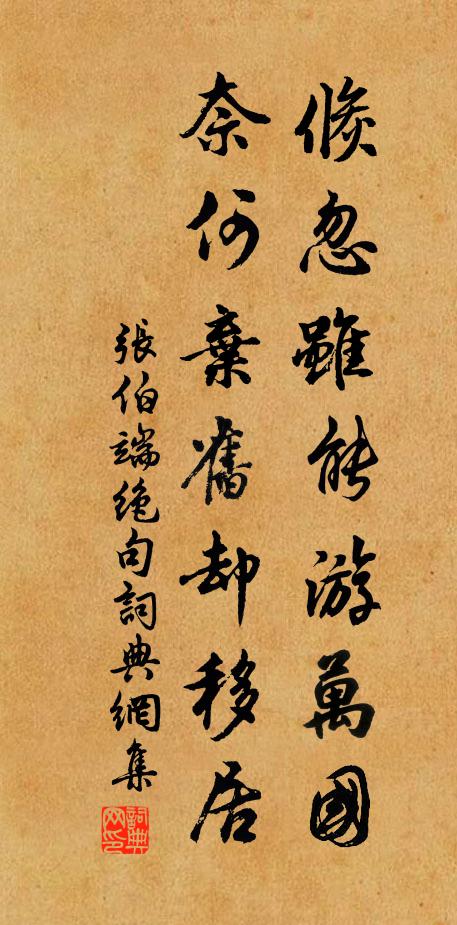 倏忽雖能游萬國
奈何棄舊却移居
張伯端絶句詞典網集
詞典网印